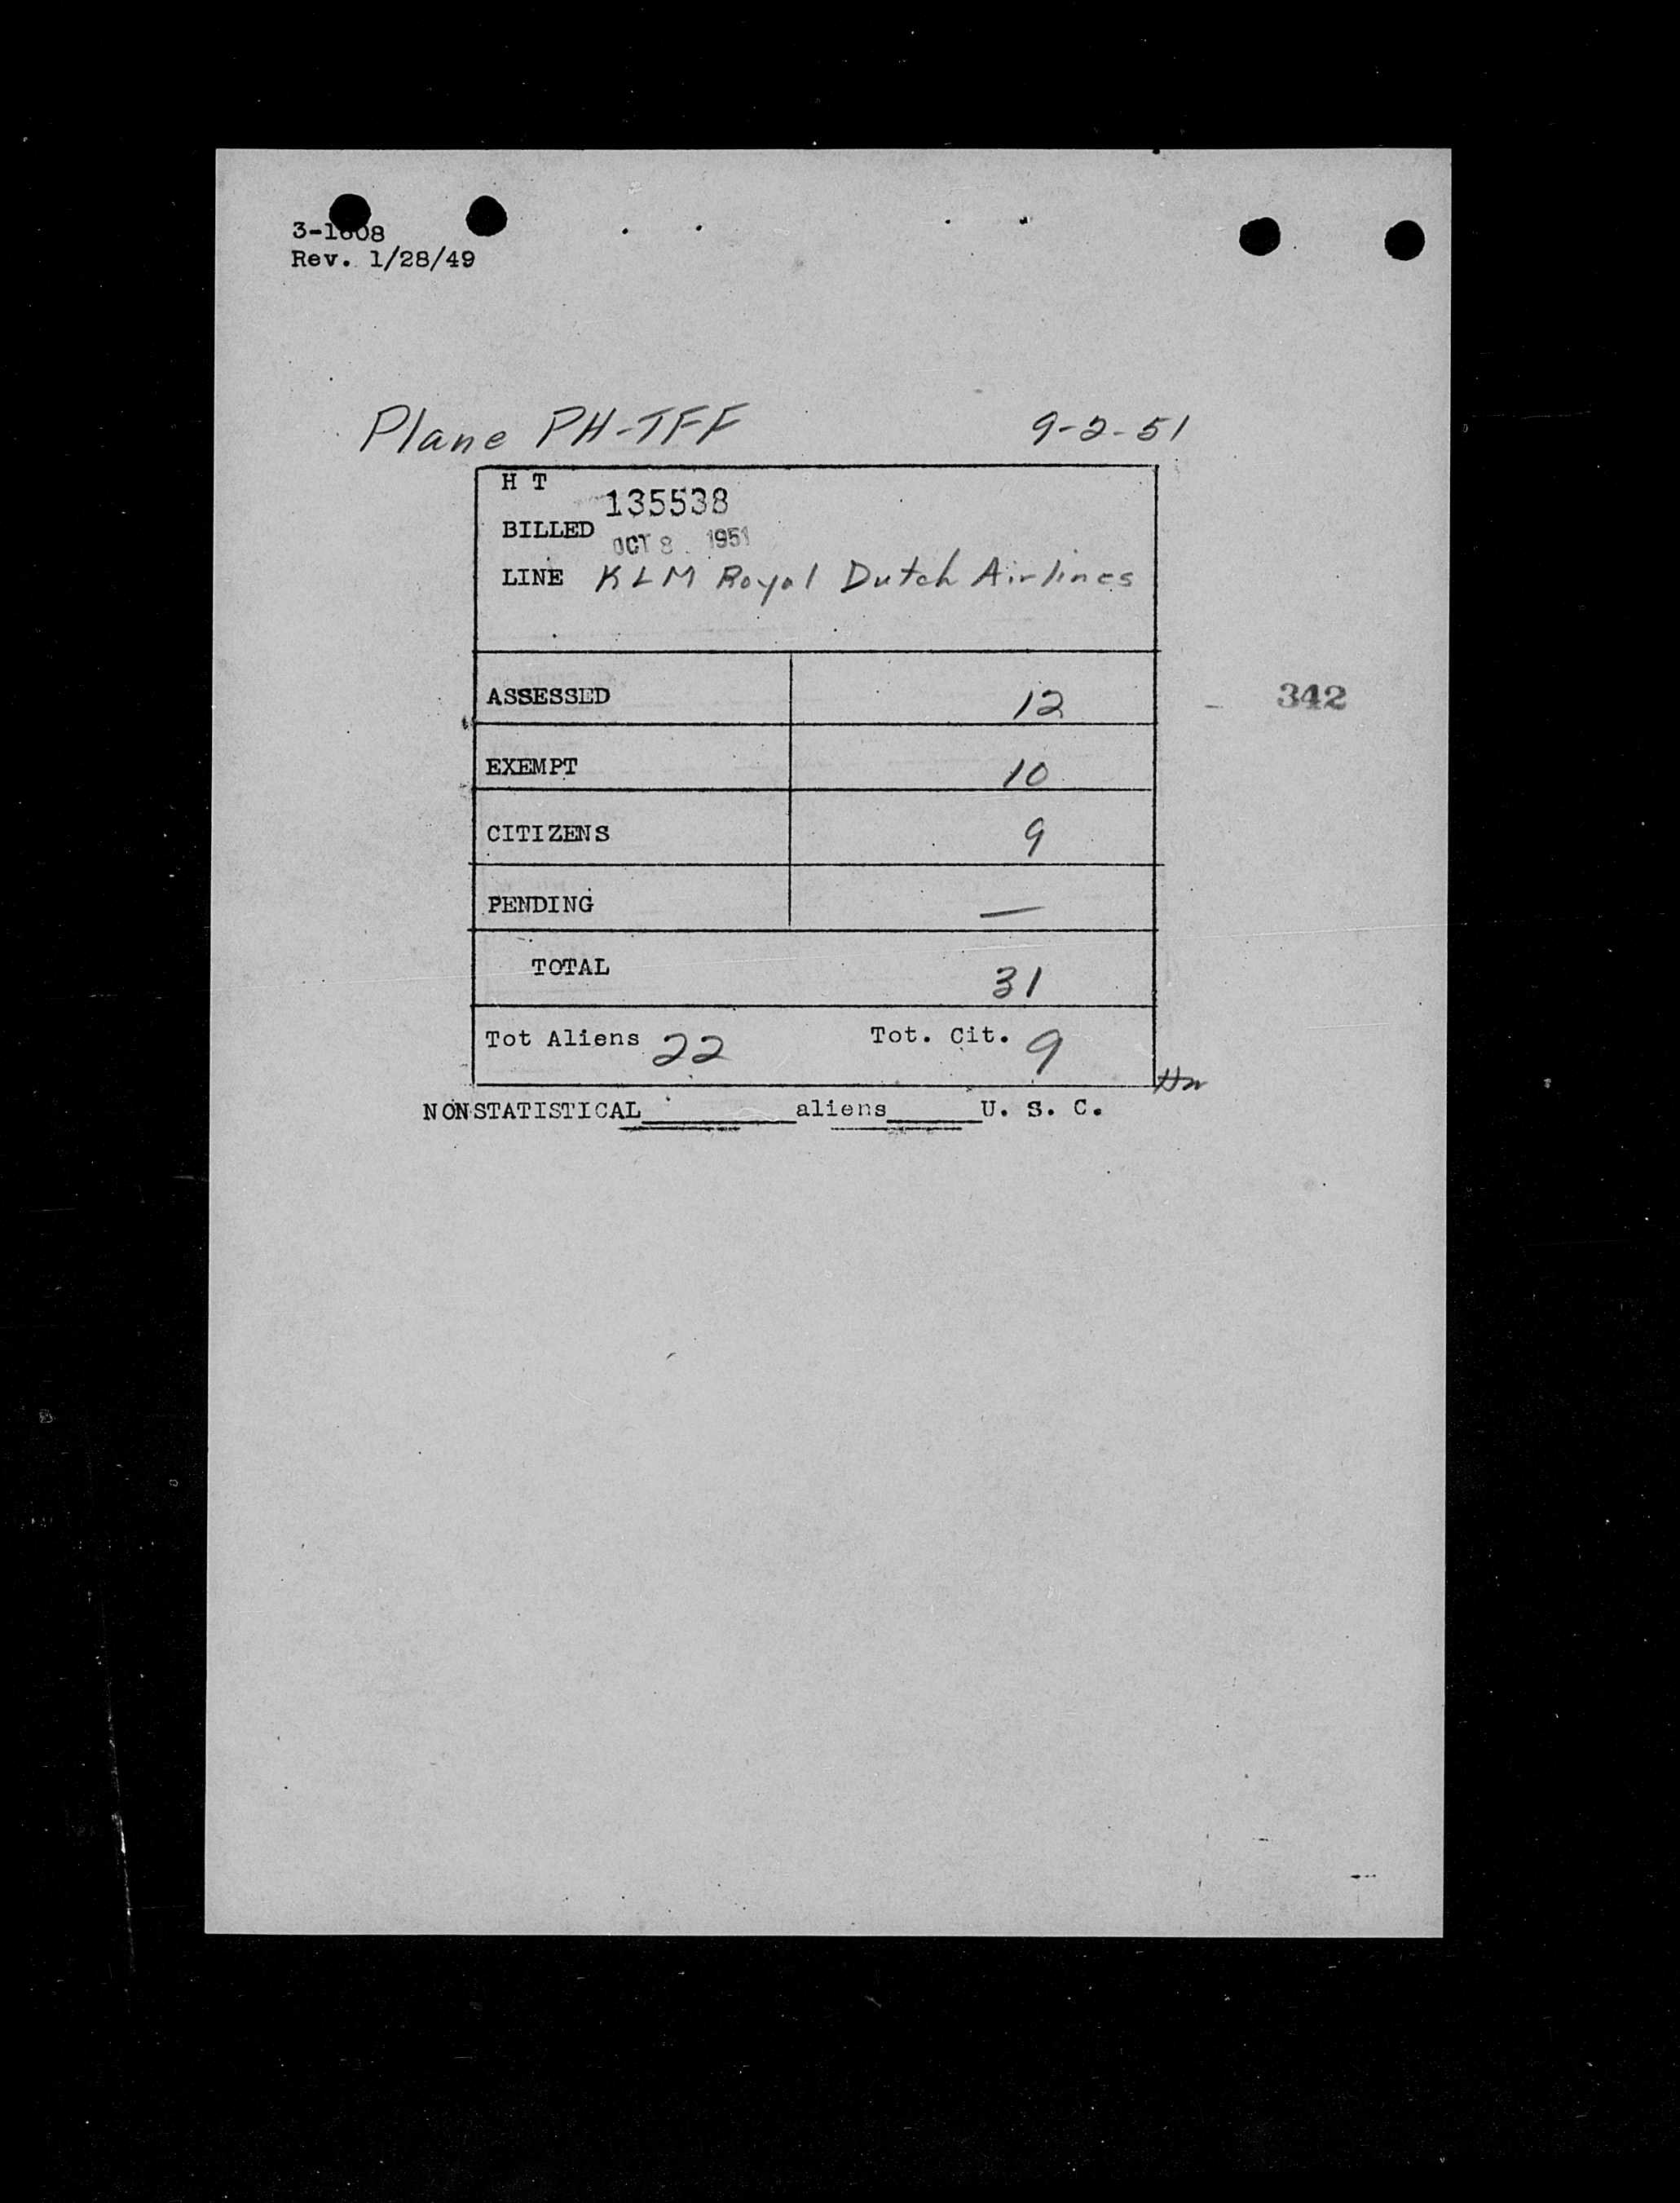 3-1608
Rev. 1/28/49
Plane PH-TFF 9-2-51
H T
135538
BILLED
OCT 8 1951
LINE KLM Royal Dutch Airlines
ASSESSED 12
342
EXEMPT 10
CITIZENS 9
PENDING —
TOTAL 31
Tot Aliens 22 Tot. Cit. 9
NONSTATISTICAL aliens U. S. C.